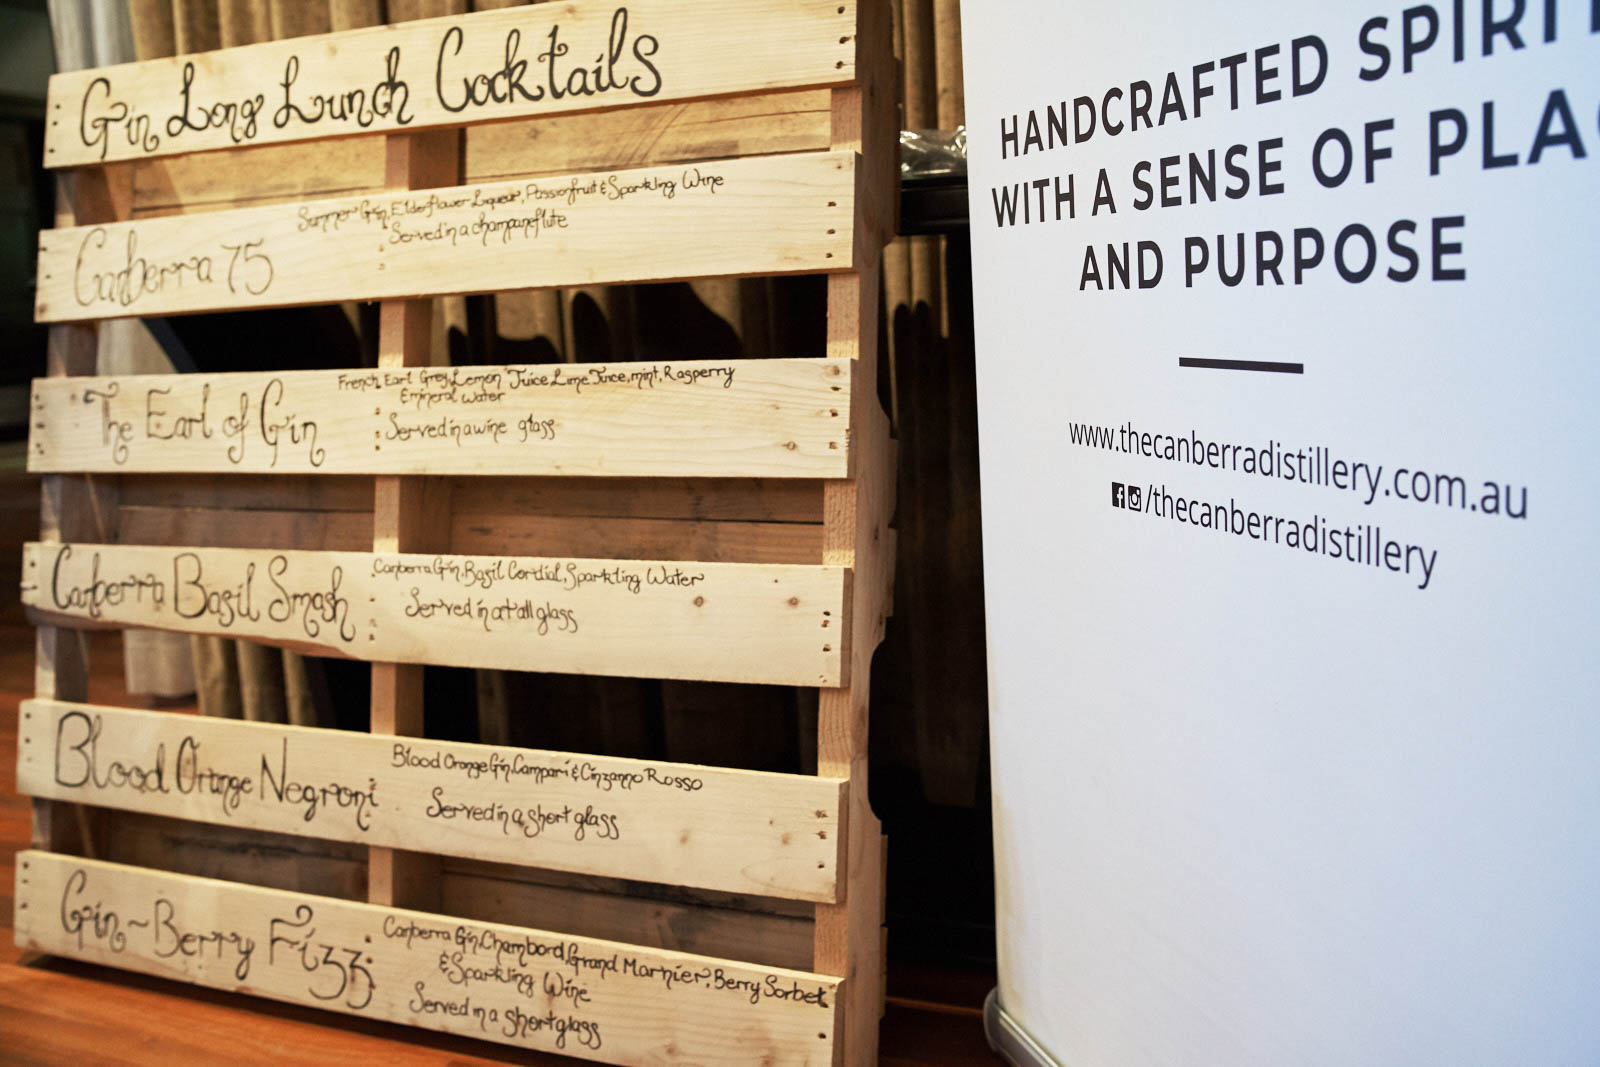 Gin Long Lunch Cocktails
Canberra 75
Summer Gin, Elderflower Liqueur, Passionfruit & Sparkling Wine
Served in a champaneflute
The Earl of Gin
French Earl Grey, Lemon Juice, Lime Juice, mint, Rasperry
& mineral water
Served in a wine glass
Canberra Basil Smash
Canberra Gin, Basil Cordial, Sparkling Water
Served in a tall glass
Blood Orange Negroni
Blood Orange Gin, Campari & Cinzanno Rosso
Served in a short glass
Gin~Berry Fizz
Canberra Gin, Chambord, Grand Marnier, Berry Sorbet
& Sparkling Wine
Served in a short glass
HANDCRAFTED SPIRIT
WITH A SENSE OF PLAC
AND PURPOSE
www.thecanberradistillery.com.au
/thecanberradistillery